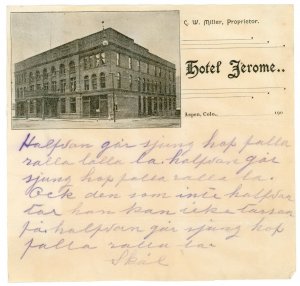 C. W. Miller, Proprietor.
Hotel Jerome..
Aspen, Colo., 190
Halfvan går sjung hop falla
ralla lalla la. halfvan går
sjung hop falla ralla la.
Ock den som inte halfvan
tar han kan icke
få halfvan går sjung hop
falla ralla la.
Skål